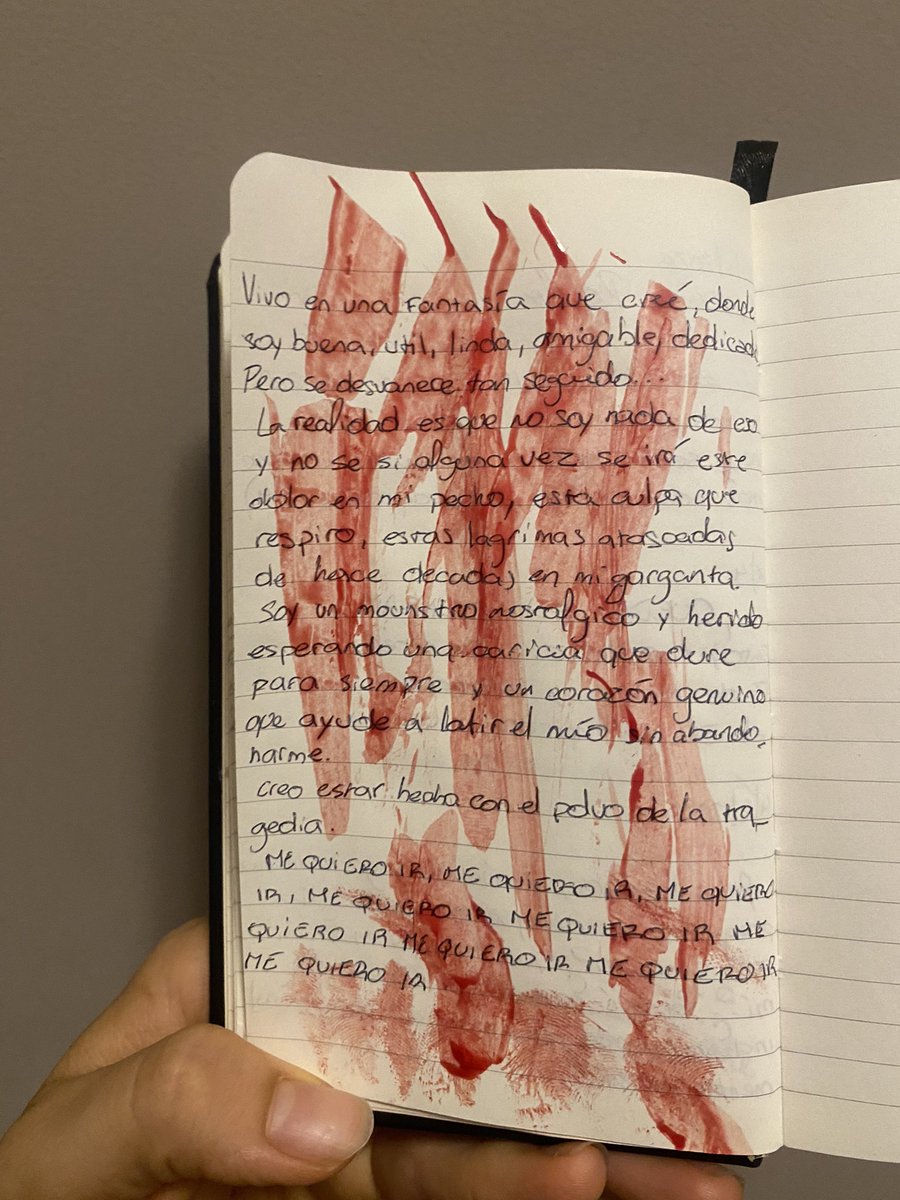 Vivo en una fantasía que creé, donde
soy buena, util, linda, amigable, dedicada
Pero se desvanece tan seguido...
La realidad es que no soy nada de eso
y no se si alguna vez se irá este
dolor en mi pecho, esta culpa que
respiro, estas lagrimas atascadas
de hace decadas en mi garganta.
Soy un mounstro nostalgico y herido
esperando una caricia que dure
para siempre y un corazón genuino
que ayude a latir el mío sin abando_
narme.
Creo estar hecha con el polvo de la tra_
gedia.
ME QUIERO IR, ME QUIERO IR, ME QUIERO
IR, ME QUIERO IR ME QUIERO IR ME
QUIERO IR ME QUIERO IR ME QUIERO IR
ME QUIERO IR